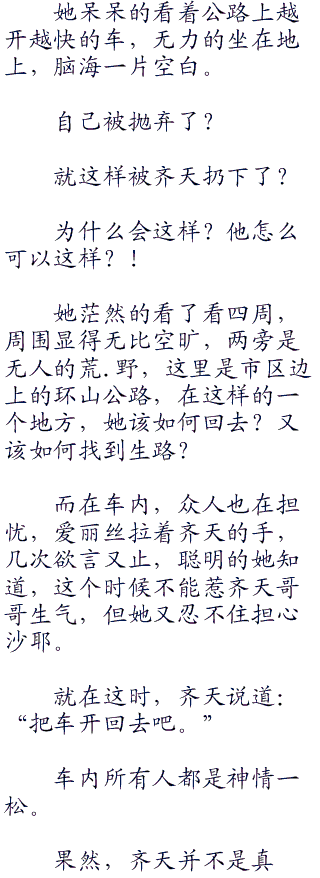 她呆呆的看着公路上越
开越快的车，无力的坐在地
上，脑海一片空白。
自己被抛弃了？
就这样被齐天扔下了？
为什么会这样？他怎么
可以这样？！
她茫然的看了看四周，
周围显得无比空旷，两旁是
无人的荒.野，这里是市区边
上的环山公路，在这样的一
个地方，她该如何回去？又
该如何找到生路？
而在车内，众人也在担
忧，爱丽丝拉着齐天的手，
几次欲言又止，聪明的她知
道，这个时候不能惹齐天哥
哥生气，但她又忍不住担心
沙耶。
就在这时，齐天说道：
“把车开回去吧。”
车内所有人都是神情一
松。
果然，齐天并不是真